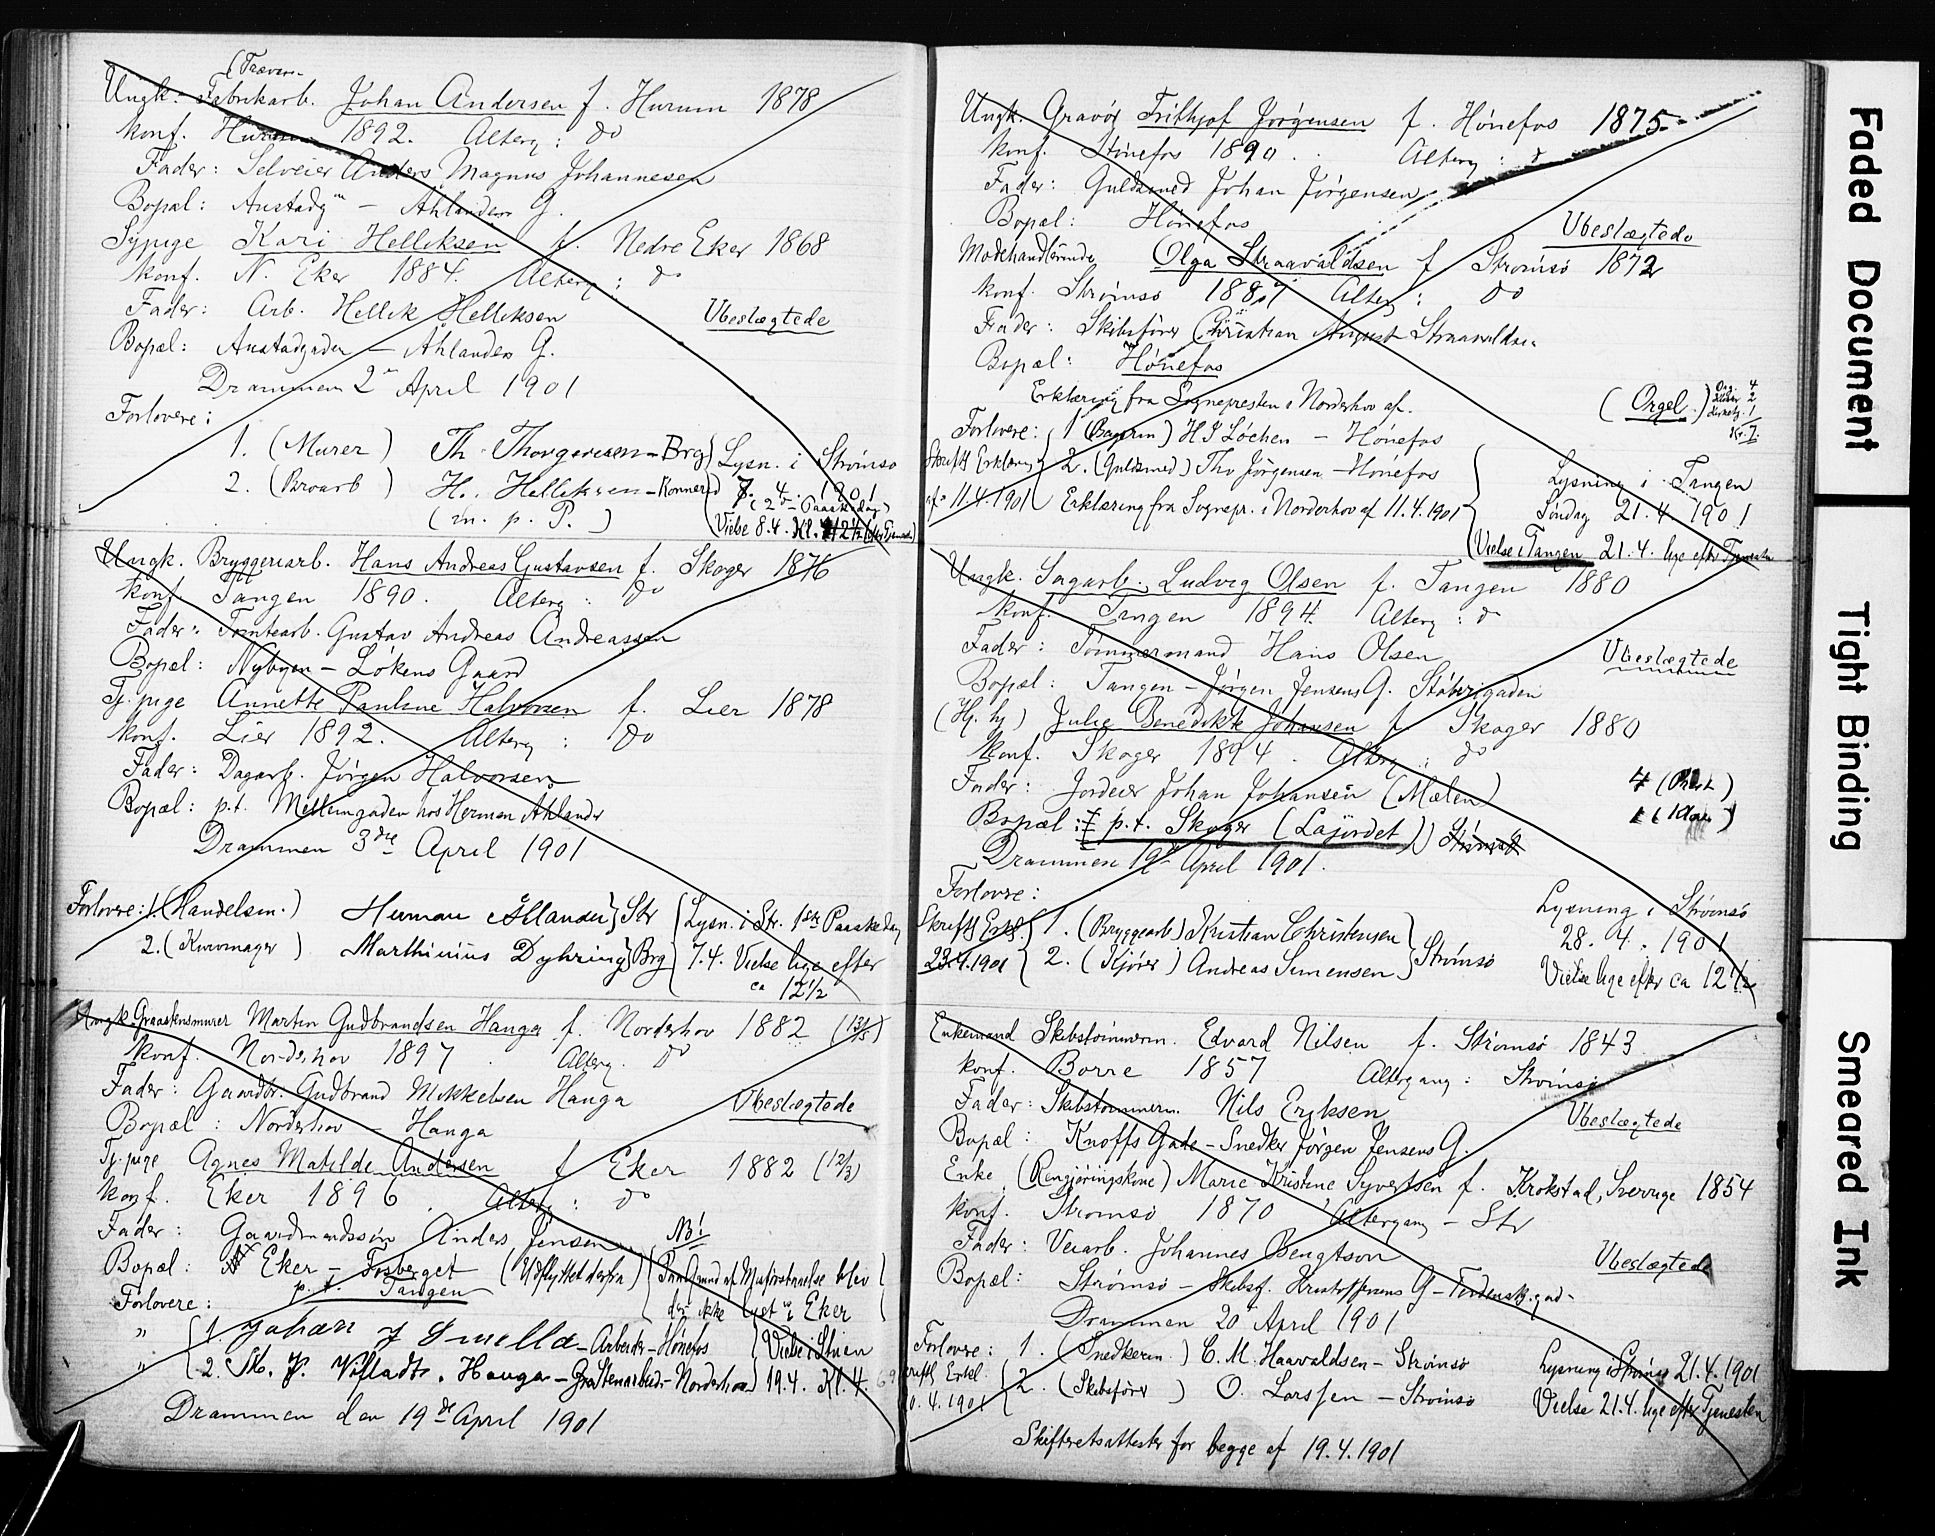 (Trævare-
Ungk. Fabrikarb. Johan Andersen f. Hurum 1878
konf. Hurum 1892. Alterg: do
Fader: Selveier Anders Magnus Johannesen
Bopæl: Austadg - Ahlanders G.
Sypige Kari Helliksen f. Nedre Eker 1868
konf. N. Eker 1884. Alterg: do
Fader: Arb. Hellik Helliksen
Ubeslægtede
Bopæl: Austadgaden - Ahlanders G.
Drammen 2 April 1901
Forlovere:
1. (Murer) Th. Thorgersen - Brg
2. (Broarb) H. Helliksen - Konnerud
(m. p. P.)
Lysn. i Strømsø
7. 4. 1901
(2 - Paaskedag)
Vielse 8.4. Kl. 12½
Ungk. Bryggeriarb. Hans Andreas Gustavsen f. Skoger 1876
konf. Tangen 1890. Alterg: do
Fader: Tomtearb. Gustav Andreas Andreassen
Bopæl: Nybyen - Løkens Gaard
Tj. pige Annette Pauline Halvorsen f. Lier 1878
konf. Lier 1892. Alterg: do
Fader: Dagarb. Jørgen Halvorsen
Bopæl: p.t. Mellemgaden hos Herman Ahlander
Drammen 3die April 1901
Forlovere: 1. (Handelsm.) Herman Ahlander Str
2. (Kurvmager) Marthinius Dyhring Brg
Lysn. i Str. 1ste Paaskedag
7.4. Vielse lige efter
ca 12½
Ungk. Graastensmurer Martin Gudbrandsen Hanga f. Norderhov 1882 (13/5)
konf. Norderhov 1897 Alterg. do
Fader: Gaardbr. Gudbrand Mikkelsen Hanga
Ubeslægtede
Bopæl: Norderhov - Hanga
Tj. pige Agnes Matilde Andersen f Eker 1882 (12/3)
konf. Eker 1896. Alterg: do
Fader: Gaardmandssøn Anders Jensen
NB!
Bopæl: Eker - Fosberget (Udflyttet derfra)
p. t. Tangen
Paa Grund af Misforstaaelse blev
der ikke lyst i Eker
Forlovere:
" 1. Johan J Smella - Arbeider - Hønefos
" 2. M. P. Vifladt, Hanga - Gråstenarbeid. - Norderhov
Vielse i Stuen
19.4. Kl. 4.
Drammen den 19de April 1901
Ungk. Gravør Frithjof Jørgensen f. Hønefos 1875
konf. Hønefos 1890. Alterg: d
Fader: Guldsmed Johan Jørgensen
Bopæl: Hønefos
Ubeslægtede
Modehandlerinde Olga Straavaldsen f Strømsø 1872
konf. Strømsø 1887 Alterg: do
Fader: Skibsfører Christian August Straavaldsen
Bopæl: Hønefos
Erklæring fra Sognepresten i Norderhov af.
(Orgel.)
Org. 4
Kr. 7.
Forlovere: 1 H J Løchen - Hønefos
Skriftl Erklæring 2. (Guldsmed) Thv Jørgensen - Hønefos
af 11.4.1901 Erklæring fra Sognepr. i Norderhov af 11.4.1901
Lysning i Tangen
Søndag 21.4.1901
Vielse i Tangen 21.4. lige efter Tjenesten
Ungk. Sagarb. Ludvig Olsen f. Tangen 1880
konf. Tangen 1894. Alterg: d
Fader: Tømmermand Hans Olsen
Ubeslægtede
Bopæl: Tangen - Jørgen Jensens G. Støberigaden
(Hj. hj) Julie Benedikte Johansen f Skoger 1880
konf. Skoger 1894. Alterg: do
Fader: Jordeier Johan Johansen (Mælen)
Bopæl: p.t. Skoger (Lajordet) Strømsø
Drammen 19 April 1901.
Forlovere:
Skriftl Erkl. 1. (Bryggearb) Kristian Christensen
23.4.1901 2. (Kjører) Andreas Simensen
Strømsø
Lysning i Strømsø
28. 4. 1901
Vielse lige efter ca 12½
Enkemand Skibstømmerm. Edvard Nilsen f. Strømsø 1843
konf. Borre 1857 Altergang: Strømsø
Fader: Skibstømmerm. Nils Eriksen
Ubeslægtede
Bopæl: Knoffs Gade - Snedker Jørgen Jensens G.
Enke (Rengjøringskone) Marie Kristine Syvertsen f. Krokstad, Sverrige 1854
konf. Strømsø 1870 Altergang - Str
Fader: Veiarb. Johannes Bengtson
Ubeslægtede
Bopæl: Strømsø - Skibsf. Kristoffersens G - Tordenskj. gad-
Drammen 20 April 1901
Forlovere: 1. (Snedkerm.) C. M. Haavaldsen - Strømsø
Skriftl Erkl. 2. (Skibsfører) O. Larssen - Strømsø
0. 4. 1901
Lysning i Strømsø 21.4.1901
Vielse 21.4. lige efter Tjenesten
Skifteretsattester for begge af 19.4.1901
Faded Document
Tight Binding
Smeared Ink